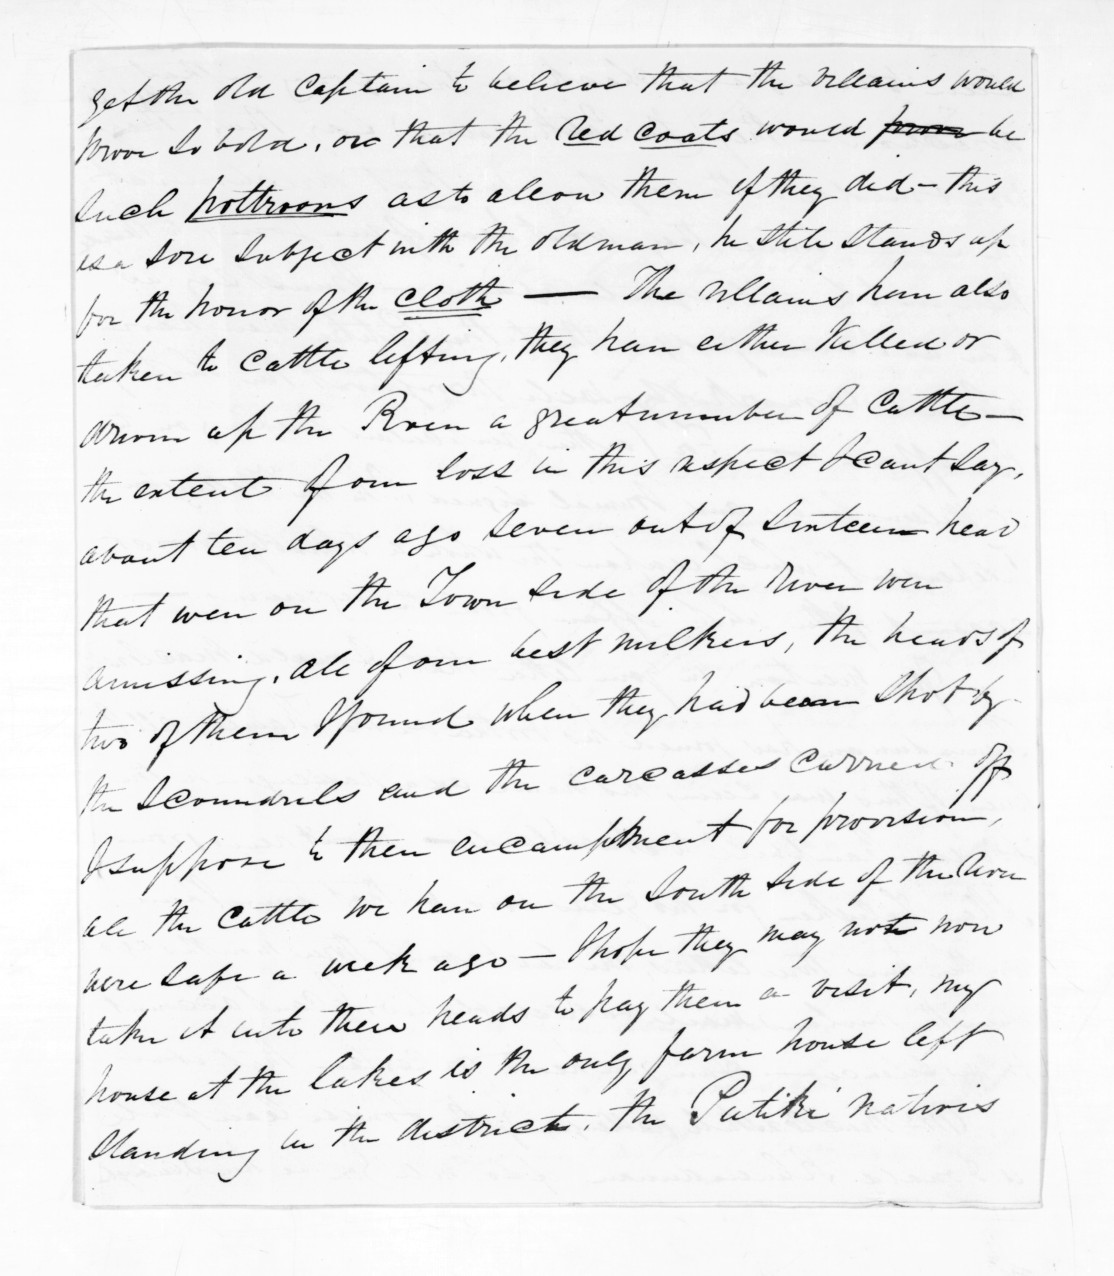 get the old Captain to believe that the villains would
prove so bold, or that the red coats would prove be
such poltroons as to allow them if they did – this
is a sore subject with the old man, he still stands up
for the honor of the cloth — The villains have also
taken to Cattle lifting, they have either killed or
driven up the River a great number of Cattle –
the extent of our loss in this respect I cant say,
about ten days ago seven out of sixteen head
that were on the Town side of the river were
amissing, all of our best milkers, the heads of
two of them I found when they had been shot by
the scoundrels and the carcasses carried off
I suppose to their encampment for provision,
all the Cattle we have on the South side of the river
were safe a week ago – I hope they may not now
take it into their heads to pay them a visit, my
house at the lakes is the only farm house left
standing in the district, the Putiki natives